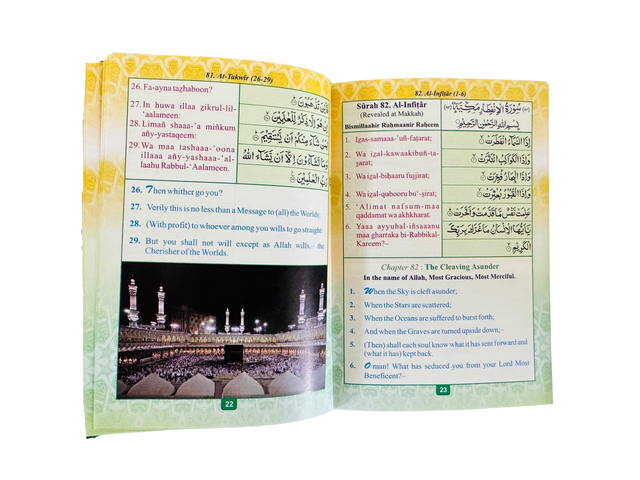 81. At-Takwir (26-29)
26. Fa-ayna tazhaboon?
27. In huwa illaa zikrul-lil-
'aalameen:
28. Limañ shaaa-'a miñkum
añy-yastaqeem:
29. Wa maa tashaaa-'oona
illaaa añy-yashaaa-'al-
laahu Rabbul-'Aalameen.
فَأَيْنَ تَذْهَبُونَ
إِنْ هُوَ إِلَّا ذِكْرٌ لِّلْعَٰلَمِينَ
لِمَن شَآءَ مِنكُمْ أَن يَسْتَقِيمَ
وَمَا تَشَآءُونَ إِلَّآ أَن يَشَآءَ اللَّهُ
رَبُّ الْعَٰلَمِينَ
26. Then whither go you?
27. Verily this is no less than a Message to (all) the Worlds:
28. (With profit) to whoever among you wills to go straight:
29. But you shall not will except as Allah wills,– the
Cherisher of the Worlds.
22
82. Al-Infiṭâr (1-6)
Sûrah 82. Al-Infiṭâr
(Revealed at Makkah)
Bismillaahir Raḥmaanir Raḥeem
1. Iẓas-samaaa-'uñ-faṭarat;
2. Wa iẓal-kawaakibuñ-ta-
ṡarat;
3. Wa iẓal-biḥaaru fujjirat;
4. Wa iẓal-qubooru bu'-ṡirat;
5. 'Alimat nafsum-maa
qaddamat wa akhkharat.
6. Yaaa ayyuhal-iñsaaanu
maa gharraka bi-Rabbikal-
Kareem?–
سُورَةُ الْإِنْفِطَارِ مَكِّيَّةٌ
بِسْمِ اللَّهِ الرَّحْمَٰنِ الرَّحِيمِ
إِذَا السَّمَآءُ انْفَطَرَتْ
وَإِذَا الْكَوَاكِبُ انْتَثَرَتْ
وَإِذَا الْبِحَارُ فُجِّرَتْ
وَإِذَا الْقُبُورُ بُعْثِرَتْ
عَلِمَتْ نَفْسٌ مَّا قَدَّمَتْ وَأَخَّرَتْ
يَٰٓأَيُّهَا الْإِنْسَانُ مَا غَرَّكَ بِرَبِّكَ
الْكَرِيمِ
Chapter 82 : The Cleaving Asunder
In the name of Allah, Most Gracious, Most Merciful.
1. When the Sky is cleft asunder;
2. When the Stars are scattered;
3. When the Oceans are suffered to burst forth;
4. And when the Graves are turned upside down;–
5. (Then) shall each soul know what it has sent forward and
(what it has) kept back.
6. O man! What has seduced you from your Lord Most
Beneficent?–
23